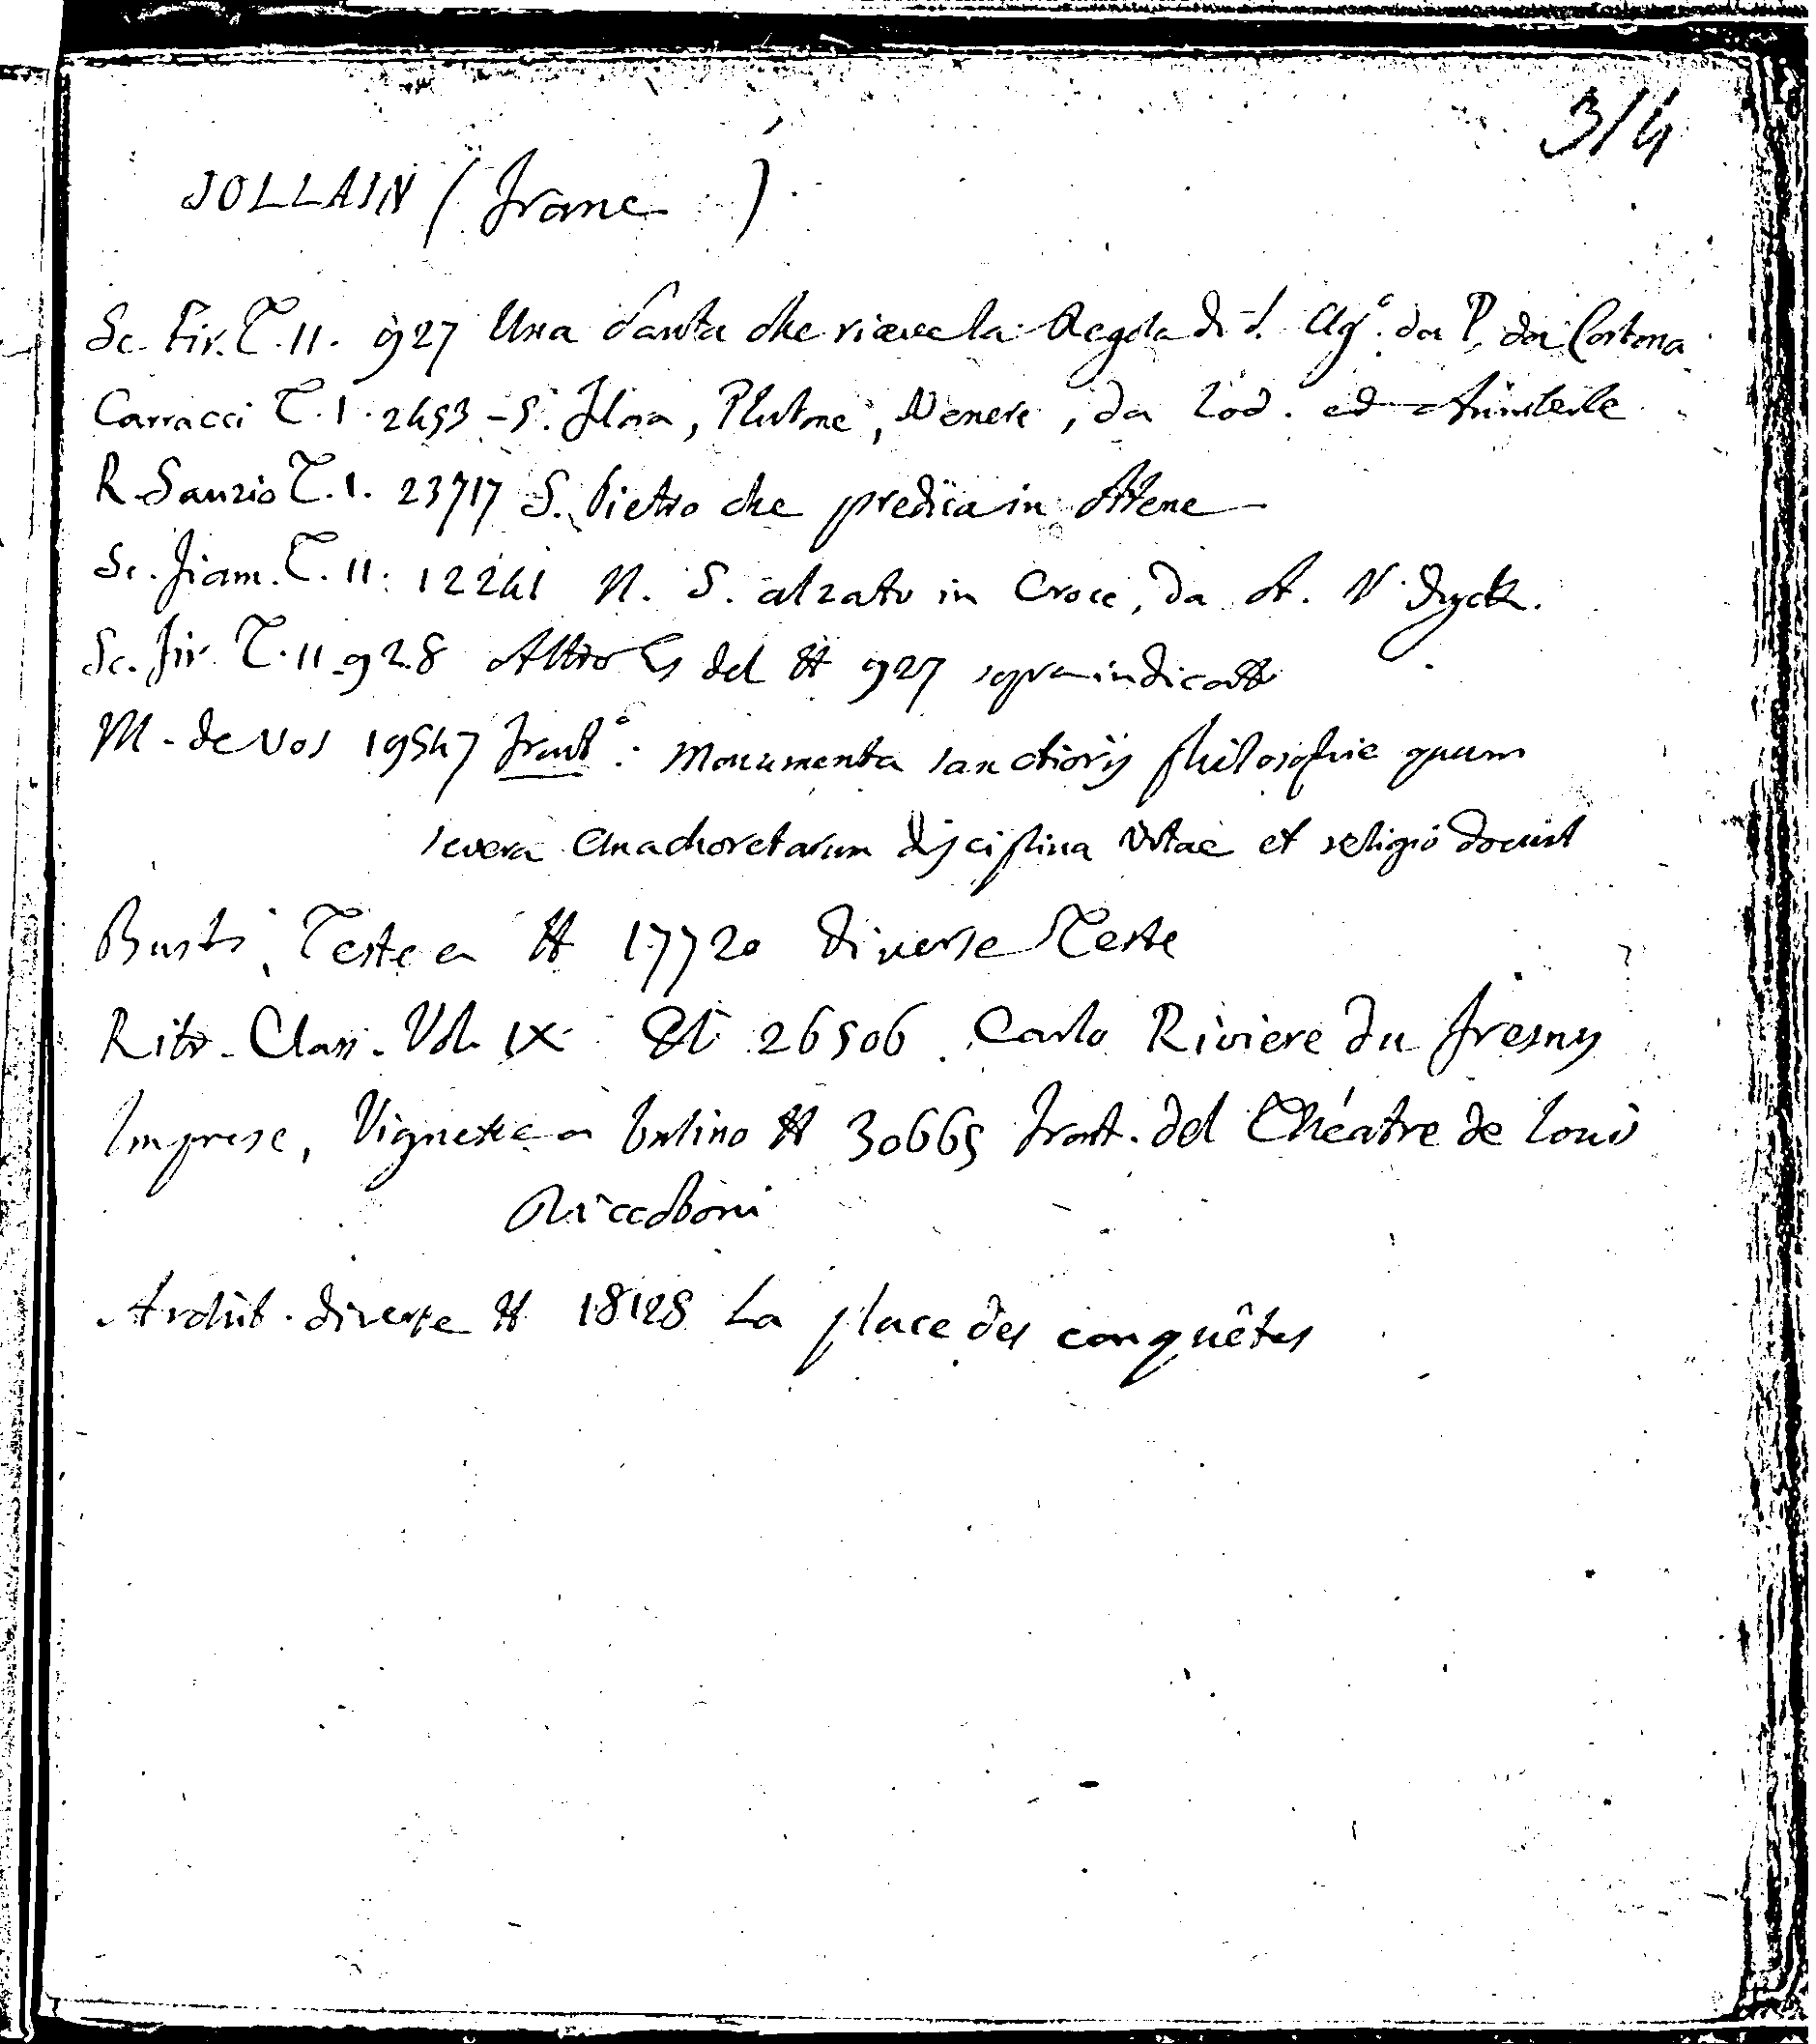 314
JOLLAIN (Franc )
Sc. Fir. T. II. 927 Una Santa che riceve la Regola di S. Ag.° da P. da Cortona
Carracci T. I. 2453-5. Flora, Plutone, Venere, da Lod. ed Annibale
R. Sanzio T. I. 23717 S. Pietro che predica in Atene
Sc. Fiam. T. II. 12241 N. S. alzato in Croce, da A. V. Dyck.
Sc. Fir. T. II. 928 Altro Es del # 927 sopraindicato
M. de Vos 19547 Front°: Monumenta sanctioris philosophie quam
severa Anachoretarum disciplina vitae et religio docuit
Busti, Teste a # 17720 Diverse Teste
Ritr. Class. Vol. IX # 26506. Carlo Riviere du Fresny
Imprese, Vignette a bulino # 30665 Front. del Théatre de Louis
Riccoboni
Archit. diverse # 18128 La place des conquêtes